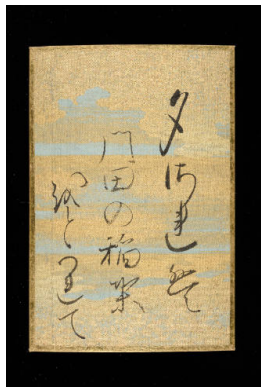 夕されは
門田の稲葉
をとつれて